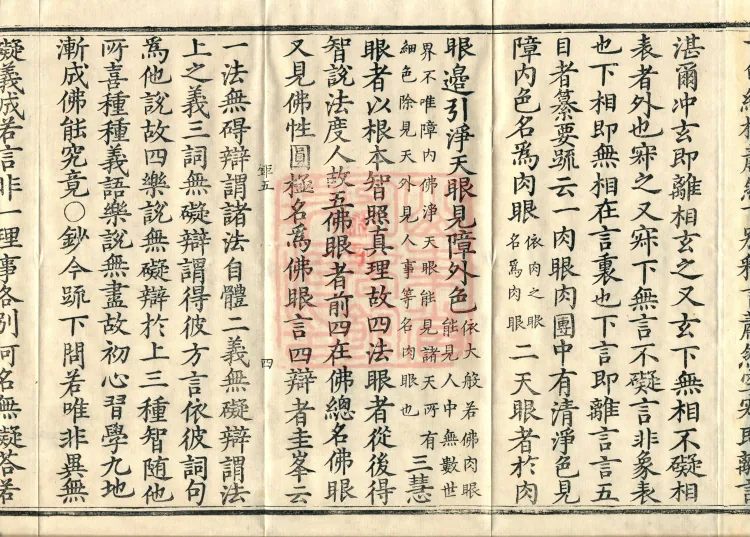 湛爾冲玄即離相玄之又玄下無相不礙相
表者外也寂之又寂下無言不礙言非象表
也下相即無相在言裏也下言即離言言五
目者纂要疏云一肉眼肉團中有清淨色見
障内色名為肉眼依肉之眼名為肉眼二天眼者於肉
眼邉引淨天眼見障外色依大般若佛肉眼能見人中無數世
界不唯障内佛淨天眼能見諸天所有細色除見天外見人事等名肉眼也三慧
眼者以根本智照真理故四法眼者從後得
智說法度人故五佛眼者前四在佛總名佛眼
又見佛性圓極名為佛眼言四辯者圭峯云
鉅五
四
一法無碍辯謂諸法自體二義無礙辯謂法
上之義三詞無礙辯謂得彼方言依彼詞句
為他說故四樂說無礙辯於上三種智随他
所喜種種義語樂說無盡故初心習學九地
漸成佛能究竟〇鈔今疏下問若唯非異無
礙義成若言非一理事各别何名無礙答若